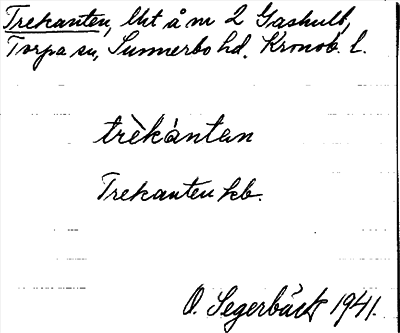 Trekanten, lht å nr 2 Gashult,
Torpa sn, Sunnerbo hd. Kronob. l.
trèkántan
Trekanten kb.
O. Segerbäck 1941.